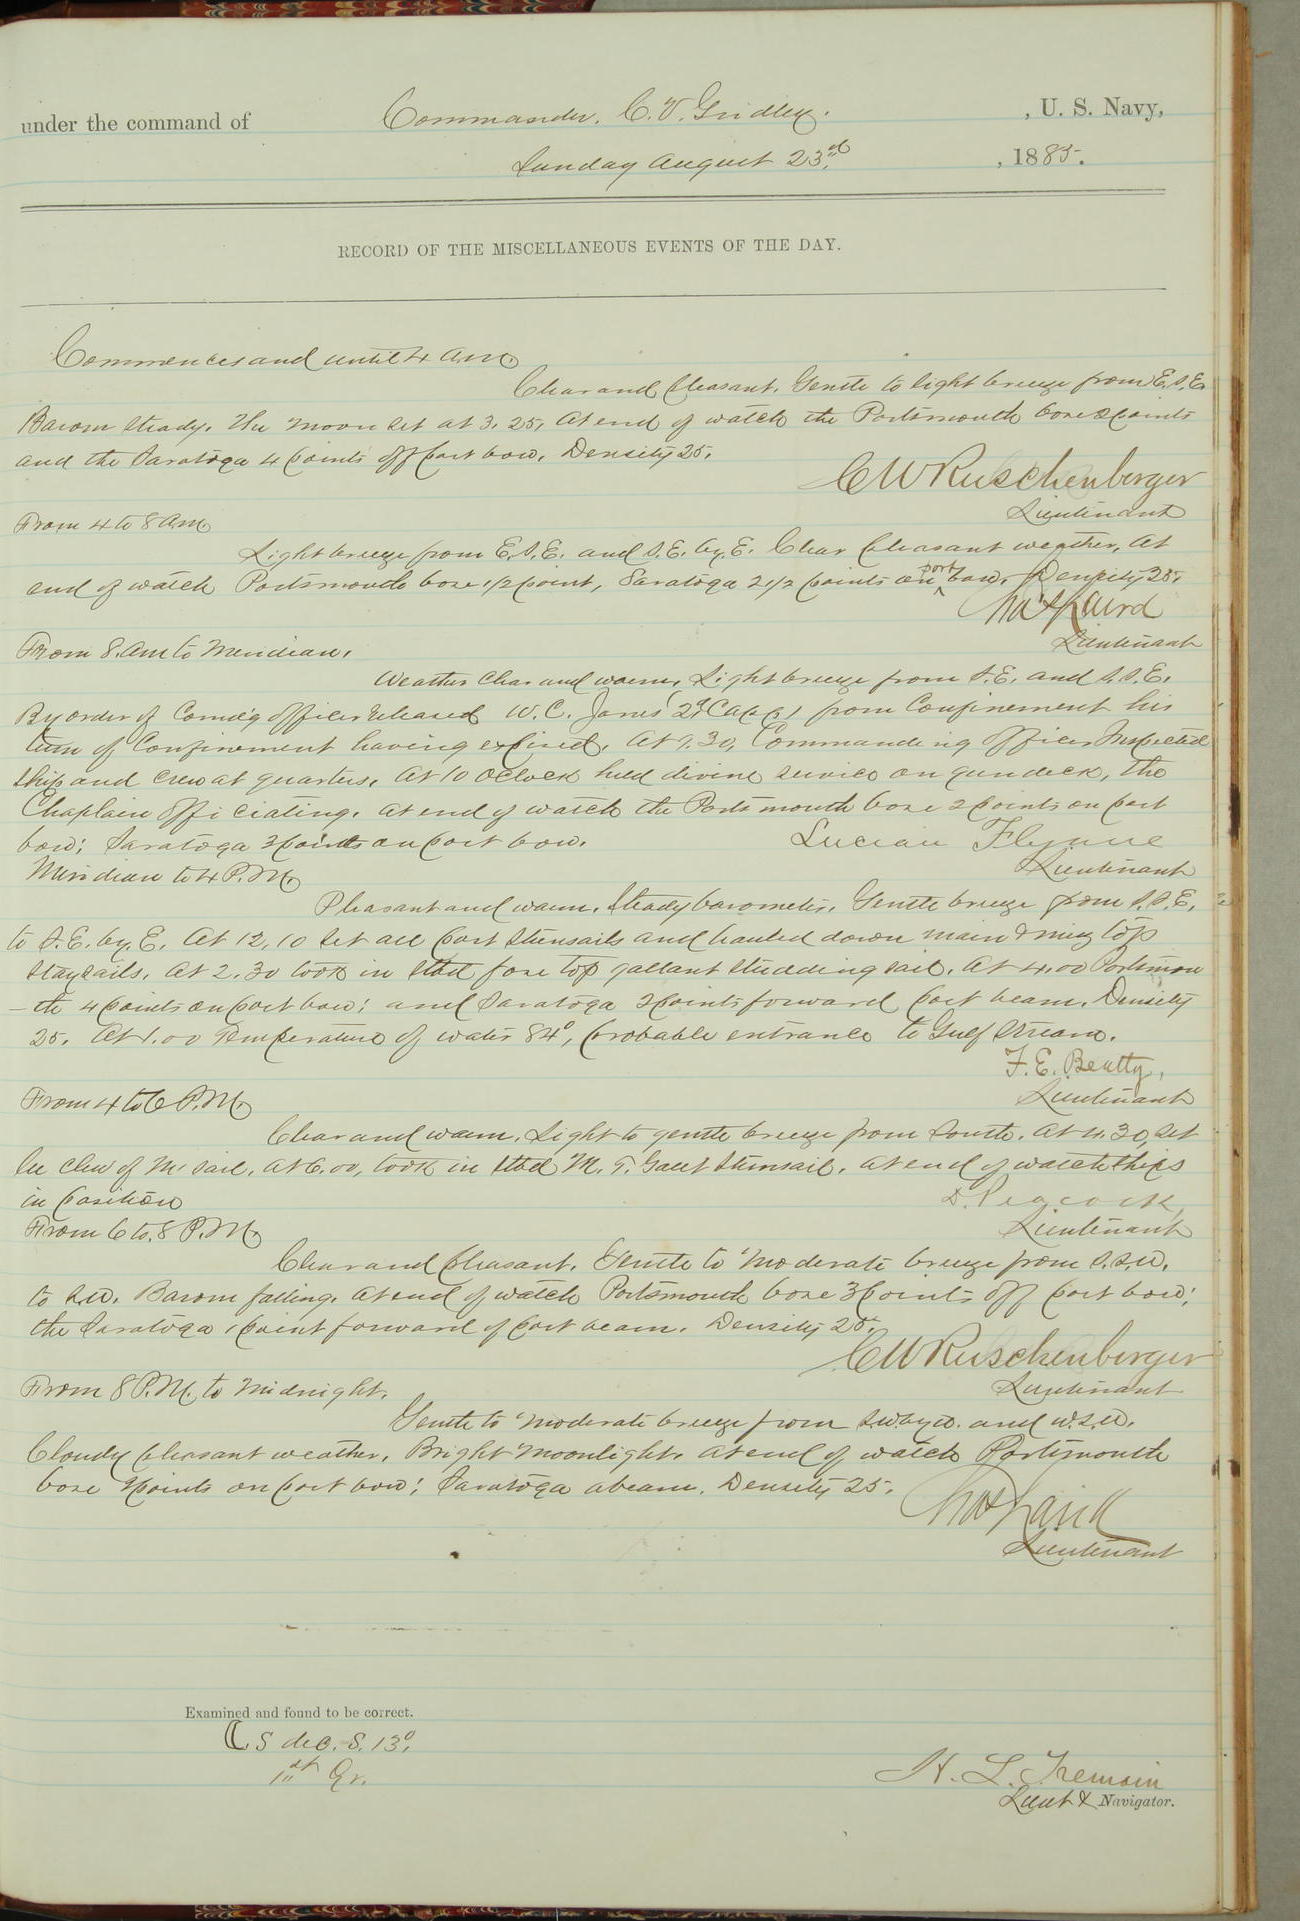 under the command of Commander. C. V. Gridley. , U. S. Navy,
Sunday August 23rd. , 1885.
RECORD OF THE MISCELLANEOUS EVENTS OF THE DAY.
Commences and until 4 a.m.
Clear and pleasant. Gentle to light breeze from E.S.E.
Barom steady. The moon set at 3.25. At end of watch the Portsmouth bore 2 points
and the Saratoga 4 points off port bow. Density 25.
C W Ruschenberger
Lieutenant
From 4 to 8 a.m.
Light breeze from E.S.E. and S.E. by E. Clear pleasant weather. At
end of watch Portsmouth bore 1/2 point, Saratoga 2 1/2 points on port bow. Density 25.
Chas Laird
Lieutenant
From 8. am to Meridian.
Weather clear and warm. Light breeze from S.E. and S.S.E.
By order of Comd'g officer released W. C. Jones from confinement his
term of confinement having expired. At 9.30, Commanding officer Inspected
ship and crew at quarters. At 10 oclock held divine service on gun deck, the
Chaplain officiating. At end of watch the Portsmouth bore 2 points on port
bow; Saratoga 3 points on port bow.
Lucian Flynne
Lieutenant
Meridian to 4 P.M.
Pleasant and warm. Steady barometer. Gentle breeze from S.S.E.
to S.E. by. E. At 12.10 set all port stunsails and hauled down main & miz top
staysails. At 2.30 took in stbd fore top gallant studding sail. At 4.00 Portsmou
-th 4 points on port bow; and Saratoga 2 points forward port beam. Density
25. At 1.00 Temperature of water 84°, probable entrance to Gulf Stream.
F. E. Beatty,
Lieutenant
From 4 to 6 P.M.
Clear and warm. Light to gentle breeze from South. At 4.30, set
lee clew of M' sail. At 6.00, took in stbd M. T. Gall't Stunsail. At end of watch ships
in position
D. Peacock,
Lieutenant
From 6 to. 8 P.M.
Clear and pleasant. Gentle to moderate breeze from S.S.W.
to S.W. Barom falling. At end of watch Portsmouth bore 3 points off port bow;
the Saratoga 1 point forward of port beam. Density 25.
C W Ruschenberger
Lieutenant
From 8 P.M. to Midnight.
Gentle to moderate breeze from S.W. by W. and W.S.W.
Cloudy pleasant weather. Bright Moonlight. At end of watch Portsmouth
bore points on port bow; Saratoga abeam. Density 25.
Chas Laird
Lieutenant
Examined and found to be correct.
S dec. S. 13°.
1st Qr.
H. L. Tremain
Lieut & Navigator.